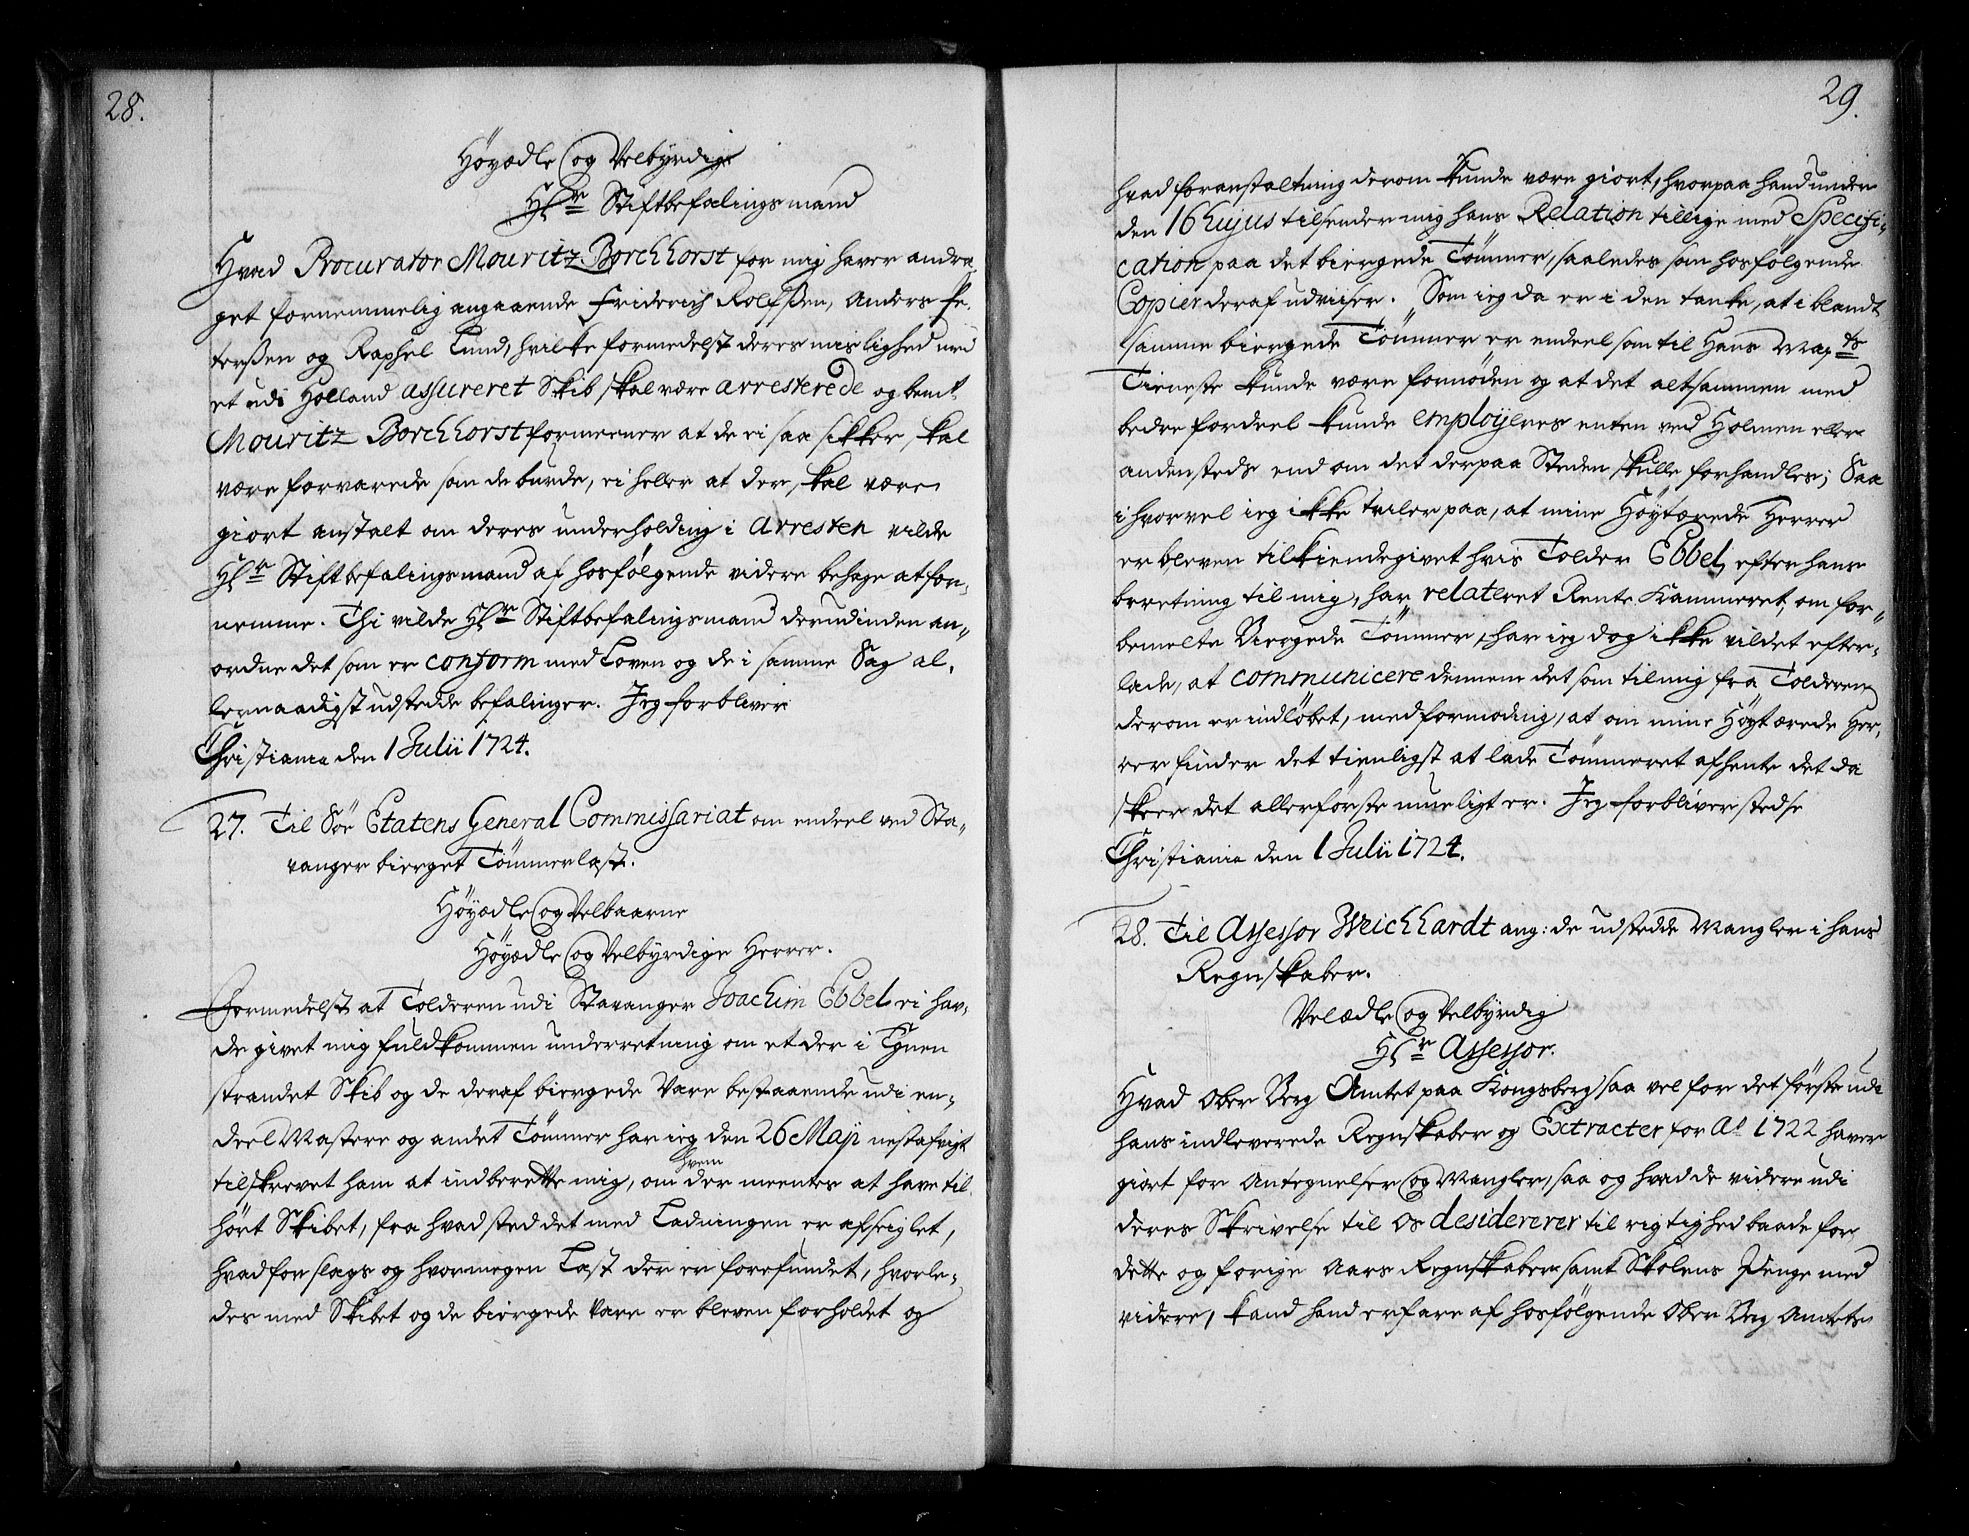 28.
Höyædle og Velbyrdige
Hr Stiftbefalingsmand
Hvad Procurator Mouritz Borchhorst for mig haver andra,
get fornemmelig angaaende Friderich Rolfsßen, Anders Pe,
terßen og Raphel Lund, hvilke formedelst deres mislighed med
et udi Holland assureret Skib skal være arresterede og bemte
Mouritz Borchhorst formeener at de ei saa sikker skal
være forvarede som de burde, ei heller at der skal være
giort anstalt om deres underholding i Arresten vilde
Hr Stiftbefalingsmand af hosfölgende videre behage at for,
nemme. Thi vilde Hr Stiftbefalingsmand derudinden an,,
ordne det som er conform med Loven og de i samme Sag al,
lernaadigst udstedde befalinger. Jeg forbliver
Christiania den 1 Julii 1724.
27. Til Söe Etatens General Commissariat om endeel ved Sta,,
vanger bierget Tömmerlast.
Höyædle og Velbaarne
Höyædle og Velbyrdige Herrer.
Formedelst at Tolderen udi Stavanger Joachim Ebbel ei hav,
de givet mig fuldkommen underretning om et der i Egnen
strandet Skib og de deraf biergede Vare bestaaende udi en,,
deel Mastere og andet Tömmer har ieg den 26 Maji nestafvigt
tilskrevet ham at indberette mig, om der meentes at have til,
hvem
hört Skibet, fra hvad sted det med Ladningen er afseiglet,
hvad for slags og hvormegen Last der er forefundet, hvorle,,
des med Skibet og de biergede Vare er bleven forholdet og
29.
hvad foranstaltning derom kunde være giort, hvorpaa hand under
den 16 hujus tilsender mig hans Relation tillige med Specifi,,
cation paa det biergede Tömmer, saaledes som hosfölgende
Copier deraf udviser. Som ieg da er i den tanke, at iblandt
samme biergede Tömmer er endeel som til Hans Mayts
Tieneste kunde være fornöden og at det altsammen med
bedre fordeel kunde employeres enten ved Holmen eller
andensteds end om det derpaa Steden skulle forhandles; Saa
ihvorvel ieg ikke tviler paa, at mine Höytærede Herrer
er bleven tilkiendegivet hvis Tolder Ebbel, efter hans
beretning til mig, har relateret Rente Kammeret, om for,,
bemelte Biergede Tömmer, har ieg dog ikke vildet efter,
lade, at communicere dennem det som til mig fra Tolderen
derom er indlöbet, med formoding, at om mine Höyt ærede Her,
rer finder det tienligst at lade Tömmeret afhente det da
skeer det allerförste mueligt er. Jeg forbliver stedse
Christiania den 1 Julii 1724.
28. Til Assessor Weichhardt ang: de udstedde Mangler i hans
Regnskaber.
Velædle og Velbyrdig
Hr Assessor.
Hvad Ober Berg Amtet paa Kongsberg saa vel for det förste udi
hans indleverede Regnskaber og Extracter for Ao 1722 haver
giort for Antegnelser og Mangler, saa og hvad de videre udi
deres Skrivelse til os desidererer til rigtighed baade for
dette og forige Aars Regnskaber samt Skolens Penge med
videre, kand hand erfare af hosfölgende Ober Berg Amtets